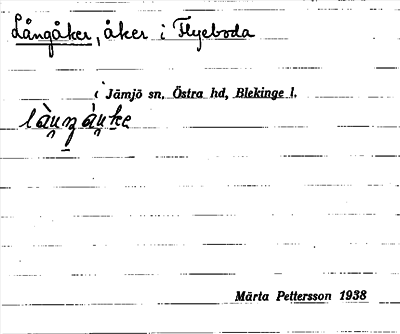 Långåker, åker i Flyeboda
i Jämjö sn, Östra hd, Blekinge l.
Märta Pettersson 1938